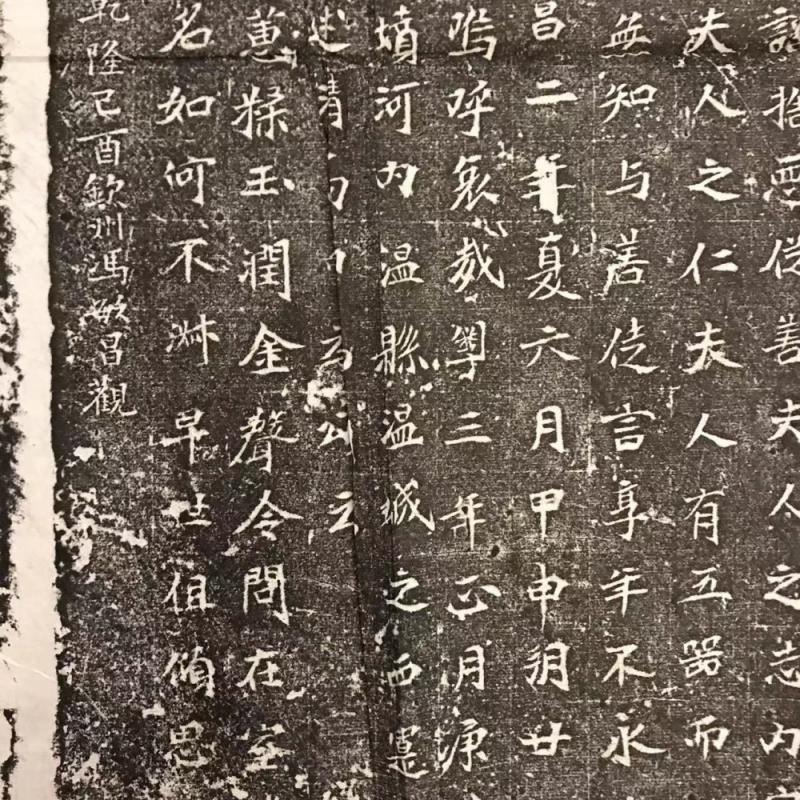 捨 從善夫人之志內
夫人之仁夫人有五器而
無知与善徒言享年不永
昌二年夏六月甲申朔廿
嗚呼哀哉學三年正月
墳河內温縣温城之西
述清 云
蕙糅玉潤金聲令問在室
名如何不淋早世但傾思
乾隆己酉欽州馮敏昌觀